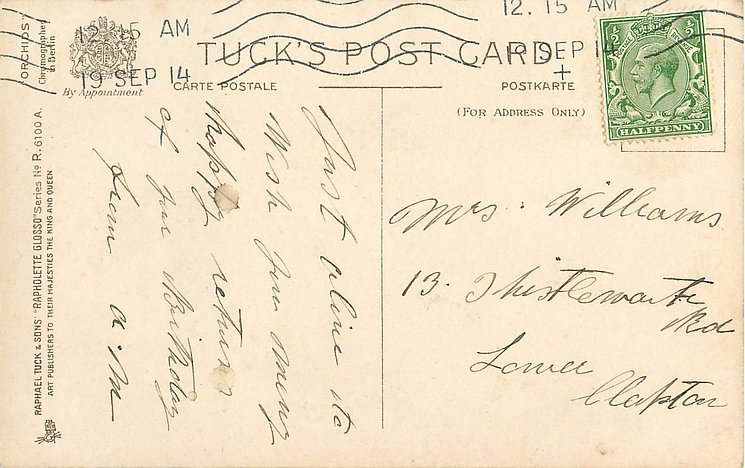 "ORCHIDS"
Chromographed
in Berlin
12. 15 AM
19 SEP 14
By Appointment
12. 15 AM
19 SEP 14
TUCK'S POST CARD
CARTE POSTALE
POSTKARTE
(FOR ADDRESS ONLY)
HALFPENNY
RAPHAEL TUCK & SONS' "RAPHOLETTE GLOSSO" Series No R. 6100 A.
ART PUBLISHERS TO THEIR MAJESTIES THE KING AND QUEEN
Just a line to
Wish you many
Happy returns
of your Birthday
from
Mrs. Williams
13. Thistlewaite
Rd
Lower
Clapton